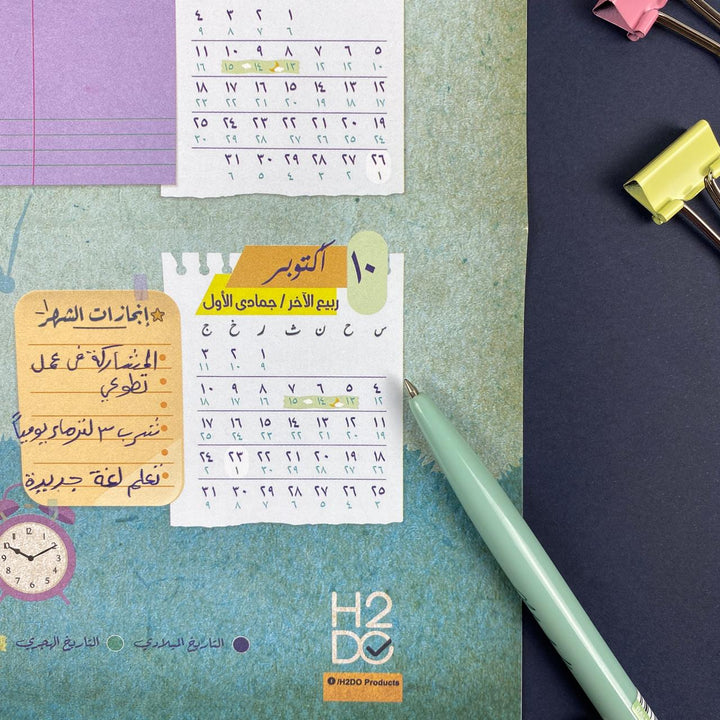 ١ ٢ ٣ ٤
٦ ٧ ٨ ٩
٥ ٦ ٧ ٨ ٩ ١٠ ١١
١٠ ١٢ ١٢ ١٣ ١٤ ١٥ ١٦
١٢ ١٣ ١٤ ١٥ ١٦ ١٧ ١٨
١٧ ١٨ ١٩ ٢٠ ٢١ ٢٢ ٢٣
١٩ ٢٠ ٢١ ٢٢ ٢٣ ٢٤ ٢٥
٢٤ ٢٥ ٢٦ ٢٧ ٢٨ ٢٩ ٣٠
٢٦ ٢٧ ٢٨ ٢٩ ٣٠ ٣١
١ ٢ ٣ ٤ ٥ ٦
١٠ أكتوبر
ربيع الآخر / جمادى الأول
س ح ن ث ر خ ج
١ ٢ ٣
٩ ١٠ ١١
٤ ٥ ٦ ٧ ٨ ٩ ١٠
١٢ ١٣ ١٤ ١٥ ١٦ ١٧ ١٨
١١ ١٢ ١٣ ١٤ ١٥ ١٦ ١٧
١٩ ٢٠ ٢١ ٢٢ ٢٣ ٢٤ ٢٥
١٨ ١٩ ٢٠ ٢١ ٢٢ ٢٣ ٢٤
٢٦ ٢٧ ٢٨ ٢٩ ٣٠ ١ ٢
٢٥ ٢٦ ٢٧ ٢٨ ٢٩ ٣٠ ٣١
٣ ٤ ٥ ٦ ٧ ٨ ٩
إنجازات الشهر
المشاركة في عمل
تطوعي
نشرب ٣ لتر ماء يومياً
نتعلم لغة جديدة
12 1 2 3 4 5 6 7 8 9 10 11
التاريخ الميلادي
التاريخ الهجري
H2
DO
/H2DO Products